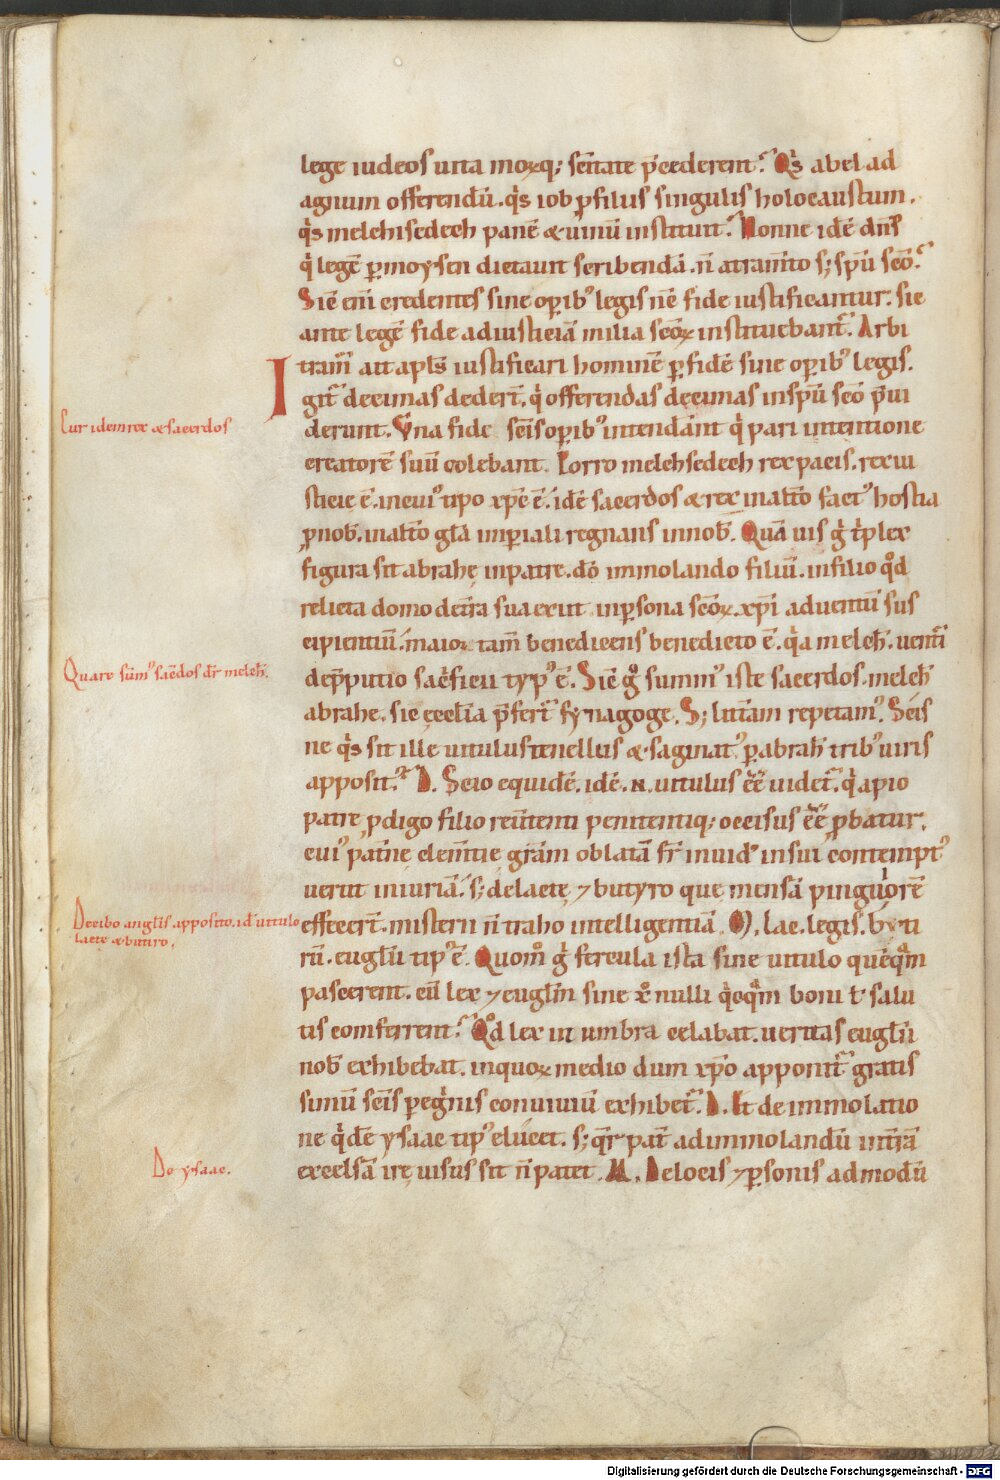 lege iudeos uita morūq; sc̄itate p̄cederent? Qͥs abel ad
agnum offerendū. qͥs iob ꝓ filiis singulis holocaustum.
qͥs melchisedech panē & uinū instituit? Nonne idē dn̄s
qͥ legē ꝑ moysen dictauit scribendā. n̄ atram̄to s; sp̄u sc̄o?
Sic̄ eni credentes sine oꝑib⁹ legis nc̄ fide iustificantur. sic
ante legē fide ad iusticiā milia sc̄oꝝ instituebant̃. Arbi
tram̃ ait apl̄s iustificari hominē ꝑ fidē sine oꝑib⁹ legis.
Igit̃ decimas dedert̄. qͥ offerendas decimas in sp̄u sc̄o p̄ui
derunt. Vna fide sc̄is oꝑib⁹ intendānt qͥ pari intentione
creatorē suū colebant. Porro melchsedech rex pacis. rex iu
sticie ē. in cui⁹ tipo xp̄c ē. idē sacerdos & rex in altō fact⁹ hostia
ꝓ nob̄. in altō gl̄a imꝑiali regnans in nob̄. Quā uis gͥ tͥplex
figura sit abrahę in patre. dō immolando filiū. in filio qͦd
relicta domo de tr̄a sua exiit in ꝑsona sc̄oꝝ. xp̄i aduentū sus
cipientiū. maioꝝ tam̄ benedicens benedicto ē. qͥa melch̄. uent̃i
de p̄putio sac̄ficii typ⁹ ē. Sic̄ gͦ summ⁹ iste sacerdos. melch̄
abrahe. sic ęccl̄ia p̄fert̃ synagoge. S; litt̄am repetam⁹. Scis
ne qͥs sit ille uitulus tenellus & saginat⁹ ꝑ abrah̄ trib⁹ uiris
apposit⁹? D. Scio equidē. idē. n. uitulus ēē uidet̃. qͥ a pio
patre ꝓdigo filio reūtenti penitentiq; occisus ēē ꝓbatur.
cui⁹ pat̄ne clem̄tię gram̄ oblatā fr̄ inuid⁹ in sui contempt⁹
uertit iniuriā. s; de lacte ⁊ butyro quę mensā pinguiorē
effecert̄. misterii n̄ traho intelligentiā. M. lac. legis. buti
rū. eugl̄ii tip⁹ ē. Quom̊ gͥ fercula ista sine uitulo quēqͣm
pascerent. cū lex ⁊ eugl̄m sine x̊ nulli qͥcqͣm boni ł salu
tis comferrent? Qͦd lex in umbra celabat. ueritas eugl̄ii
nob̄ exhibebat. in quoꝝ medio dum xp̄o apponit̃ gratis
sumū sc̄is ꝑegͥnis conuiuiū exhibet̃. D. Et de immolatio
ne qͥdē ysaac tip⁹ elucet. s; qͣr pat̄ ad immolandū in tr̄ā
excelsā irę uisus sit n̄ patet. M. De locis ⁊ ꝑsonis admodū
Cur idem rex & sacerdos
Quare sūm⁹ sac̄dos dr̄ melch̄.
De cibo angl̄is apposito. id⁹ uitulo
lacte & butiro.
De ysaac.
Digitalisierung gefördert durch die Deutsche Forschungsgemeinschaft - DFG